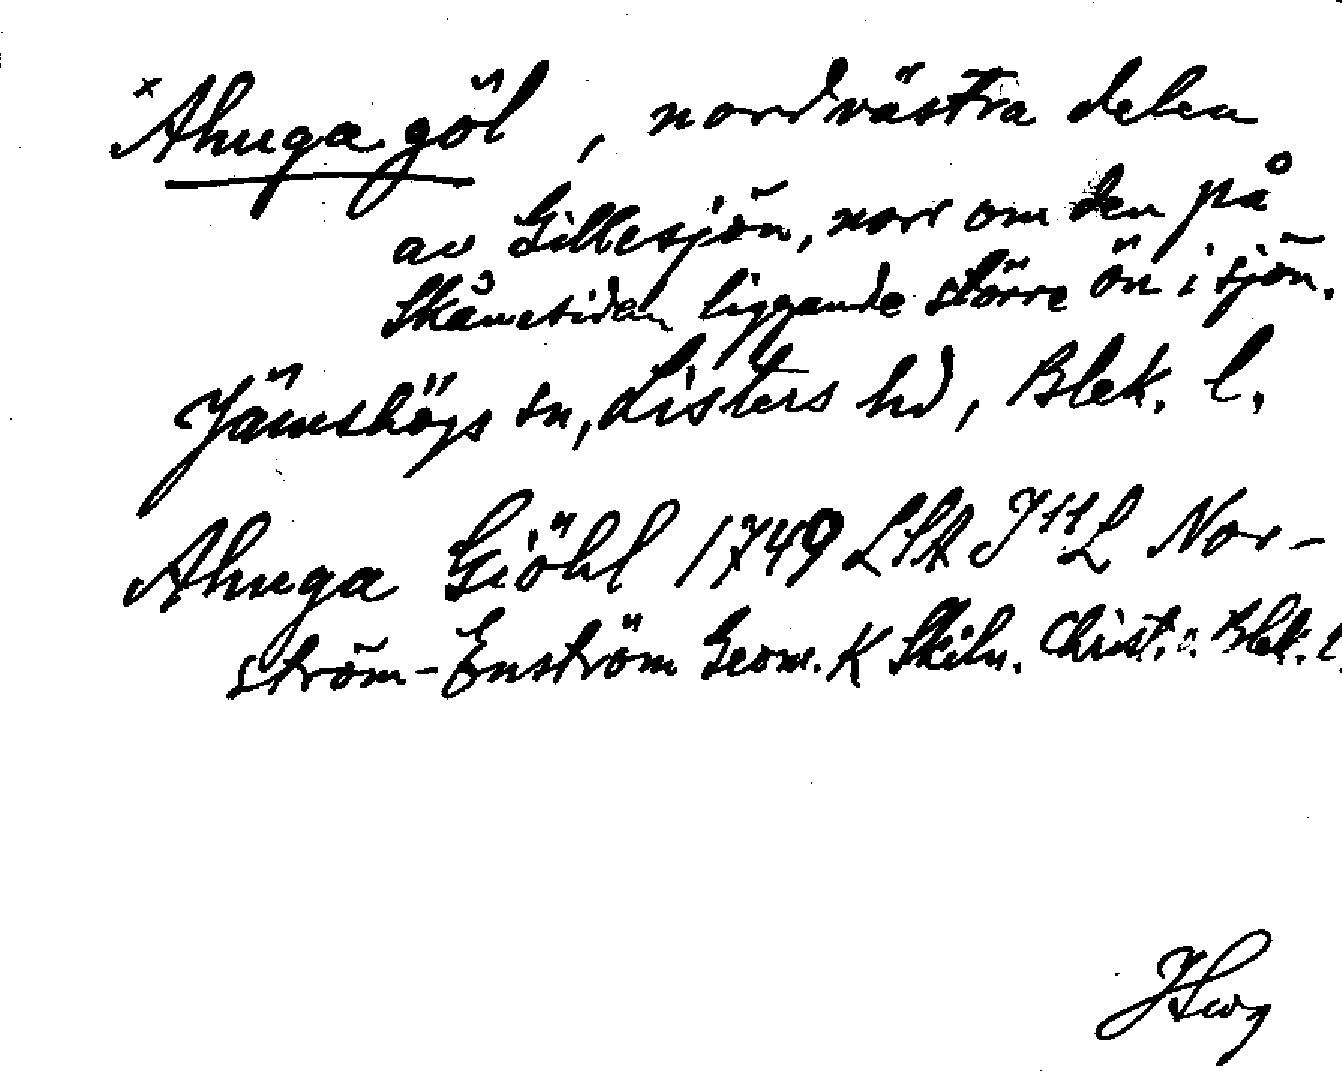 ×Ahuga göl, nordvästra delen
av Gillesjön, norr om den på
Skånesidan liggande större ön i sjön.
Jämshögs sn, Listers hd, Blek. l.
Ahuga Giöhl 1749 LSA J11L Nor-
ström-Enström Geom. K Skiln. Christ. o. Blek. l.